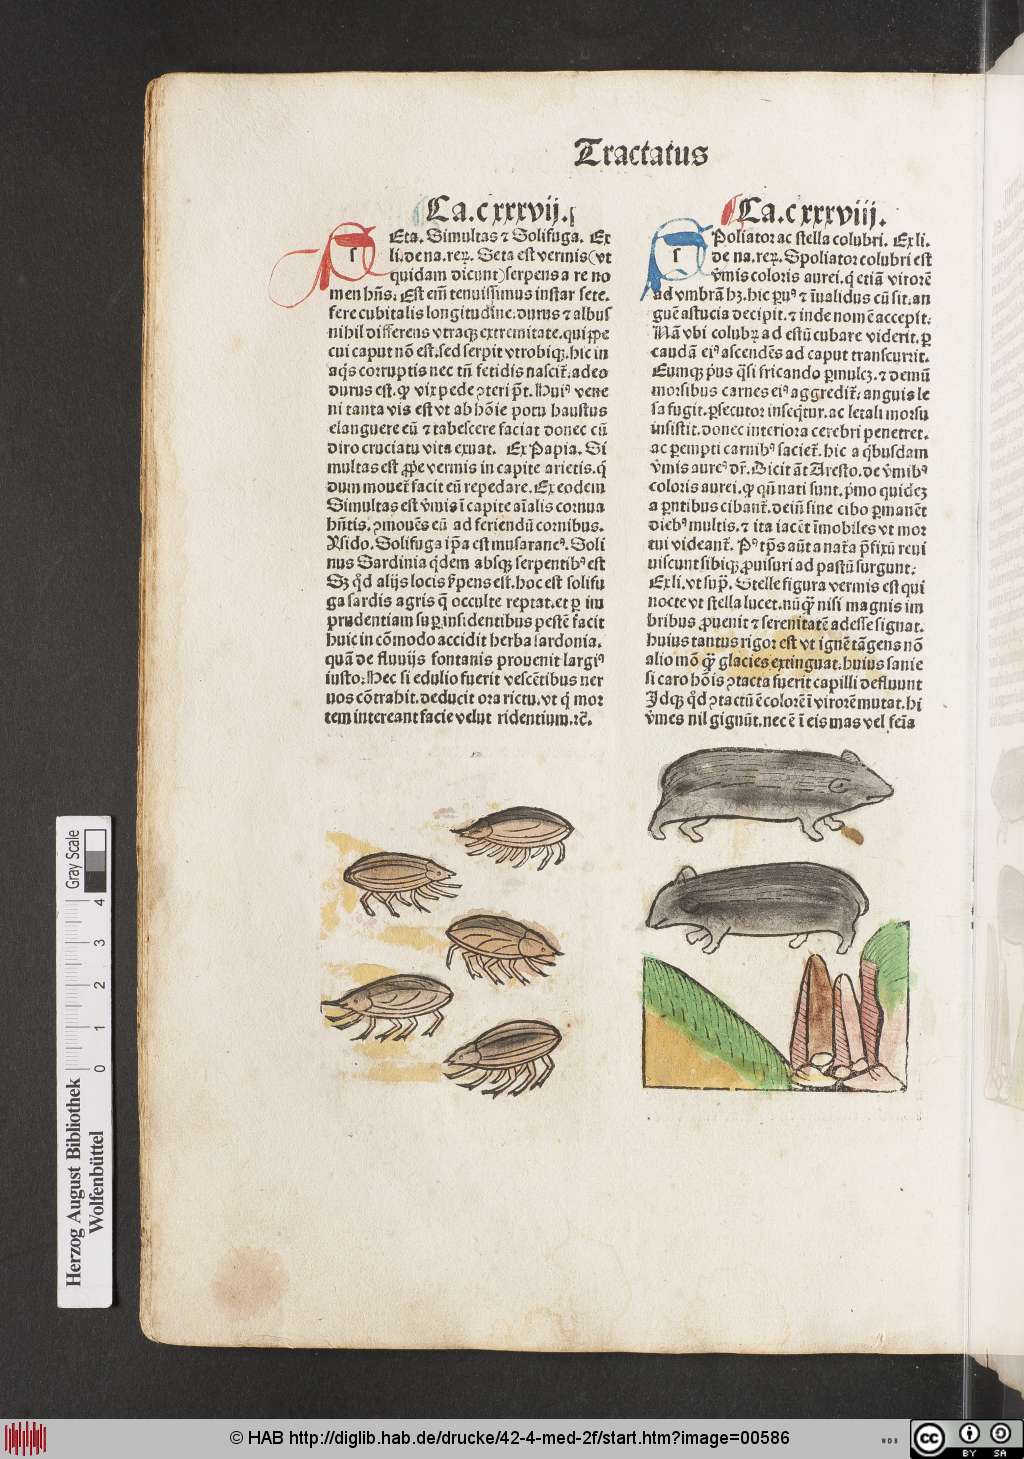 Tractatus
Ca.cxxxvij.
SEta. Simultas ⁊ Solifuga. Ex
li.de na.reꝝ. Seta est vermis(vt
quidam dicunt)serpens a re no
men hn̄s: Est em̄ tenuissimus instar sete.
fere cubitalis longitudine.durus ⁊ albus
nihil differens vtraqꝫ extremitate.quippe
cui caput nō est.sed serpit vtrobiqꝫ.hic in
aq̄s corruptis nec tn̄ fetidis nascit̄.adeo
durus est.ꝙ vix pede ꝯteri p̄t. Huiꝰ vene
ni tanta vis est vt ab hōie potu haustus
elanguere eū ⁊ tabescere faciat donec cū
diro cruciatu vita exuat. Ex Papia. Si
multas est ꝓpe vermis in capite arietis.q̇
dum mouet̄ facit eū repedare. Ex eodem
Simultas est v̄mis ī capite aīalis cornua
hn̄tis.ꝯmouēs eū ad feriendū cornibus.
Ysido. Solifuga ip̄a est musaraneꝰ. Soli
nus Sardinia q̇dem absqꝫ serpentibꝰ est
Sꝫ qd̓ alijs locis s̄pens est.hoc est solifu
ga sardis agris q̄ occulte reptat.et ꝑ im
prudentiam suꝑinsidentibus pestē facit
huic incōmodo accidit herba sardonia.
quā de fluuijs fontanis prouenit largiꝰ
iusto: Hec si edulio fuerit vescētibus ner
uos cōtrahit.deducit ora rictu.vt q̇ mor
tem intereant facie velut ridentium.ꝛc̄.
Ca.cxxxviij.
SPoliator ac stella colubri. Ex li.
de na.reꝝ. Spoliator colubri est
v̄mis coloris aurei.q̇ etiā virorē
ad vmbrā hꝫ.hic ꝑuꝰ ⁊ īualidus cū sit.an
guē astucia decipit.⁊ inde nomē accepit:
Nā vbi colubꝝ ad estū cubare viderit.ꝑ
caudā eiꝰ ascendēs ad caput transcurrit.
Eumqꝫ pͥus q̄si fricando ꝑmulcꝫ.⁊ demū
morsibus carnes eiꝰ aggredit̄: anguis le
sa fugit.ꝑsecutor inseqt̄ur.ac letali morsu
insistit.donec interiora cerebri penetret.
ac ꝑempti carnibꝰ saciet̄.hic a q̇busdam
v̄mis aureꝰ dr̄. Dicit āt Aresto.de v̄mibꝰ
coloris aurei.ꝙ qn̄ nati sunt.pͥmo quideꝫ
a pn̄tibus cibant̄.deiū sine cibo ꝑmanēt
diebꝰ multis.⁊ ita iacēt īmobiles vt mor
tui videant̄. Pꝰ tp̄s aūt a nat̄a p̄fixū reui
uiscunt sibiqꝫ ꝓuisuri ad pastū surgunt:
Ex li.vt supͣ. Stelle figura vermis est qui
nocte vt stella lucet.nūqͣ nisi magnis im
bribus ꝓuenit ⁊ serenitatē adesse signat.
huius tantus rigor est vt ignē tāgens nō
alio mō qͣ glacies extinguat.huius sanie
si caro hoīs ꝯtacta fuerit capilli defluunt
Idqꝫ qd̓ ꝯtactū ē colorē ī virorē mutat.hi
v̄mes nil gignūt.nec ē ī eis mas vel feīa
Gray Scale
4
3
2
1
0
Herzog August Bibliothek
Wolfenbüttel
© HAB http://diglib.hab.de/drucke/42-4-med-2f/start.htm?image=00586
WDB
cc
BY SA